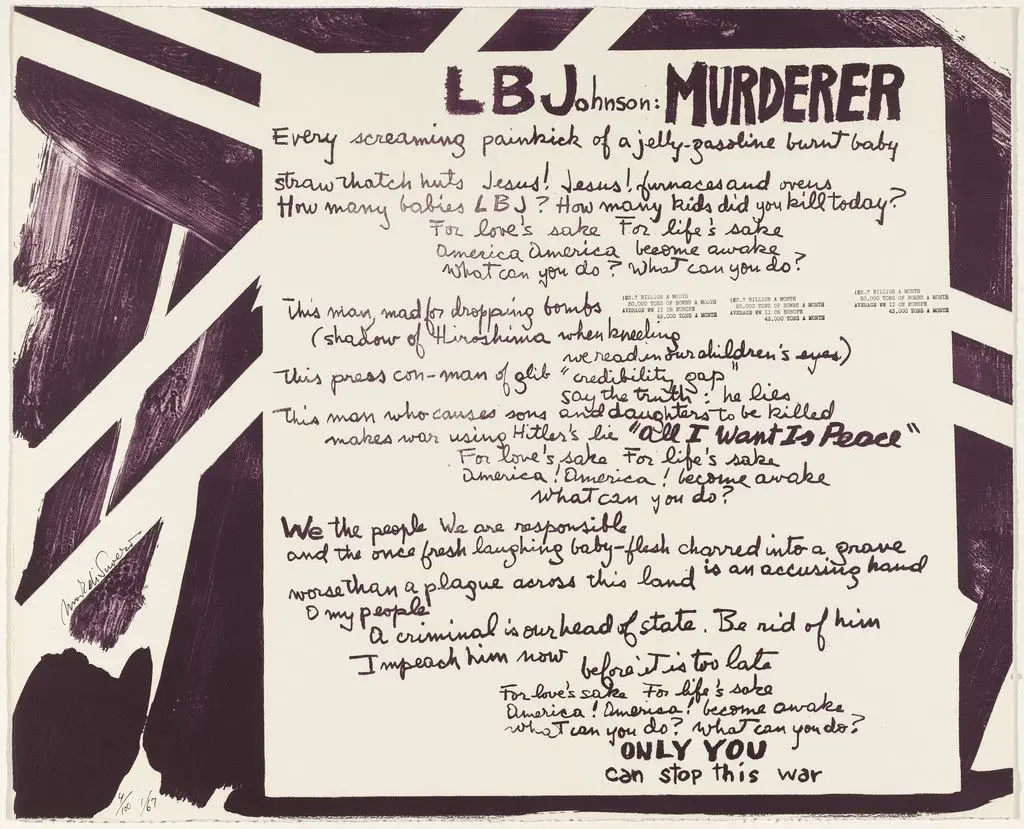 LBJohnson: MURDERER
Every screaming painkick of a jelly-gasoline burnt baby
straw thatch huts Jesus! Jesus! furnaces and ovens
How many babies LBJ? How many kids did you kill today?
For love's sake For life's sake
America America become awake
What can you do? What can you do?
This man, mad for dropping bombs
($2.7 BILLION A MONTH
50,000 TONS OF BOMBS A MONTH
AVERAGE WW II ON EUROPE
43,000 TONS A MONTH
($2.7 BILLION A MONTH
50,000 TONS OF BOMBS A MONTH
AVERAGE WW II ON EUROPE
43,000 TONS A MONTH
($2.7 BILLION A MONTH
50,000 TONS OF BOMBS A MONTH
AVERAGE WW II ON EUROPE
43,000 TONS A MONTH
(shadow of Hiroshima when kneeling
we read in our children's eyes)
This press con-man of glib "credibility gap"
say the truth: he lies
This man who causes sons and daughters to be killed
makes war using Hitler's lie "All I Want Is Peace"
For love's sake For life's sake
America! America! become awake
What can you do?
We the people We are responsible
and the once fresh laughing baby-flesh charred into a grave
worse than a plague across this land is an accusing hand
O my people
A criminal is our head of state. Be rid of him
Impeach him now before it is too late
For love's sake For life's sake
America! America! become awake
What can you do? What can you do?
ONLY YOU
can stop this war
4/100 1/67